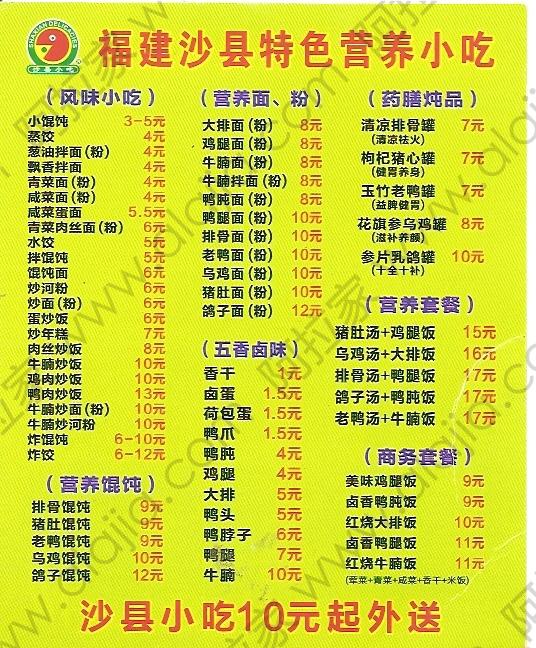 福建沙县特色营养小吃
SHAXIAN DELICACIES
沙县小吃
(风味小吃)
小馄饨 3-5元
蒸饺 4元
葱油拌面(粉) 4元
飘香拌面 4元
青菜面(粉) 4元
咸菜面(粉) 4元
咸菜蛋面 5.5元
青菜肉丝面(粉) 6元
水饺 5元
拌馄饨 5元
馄饨面 6元
炒河粉 6元
炒面(粉) 6元
蛋炒饭 6元
炒年糕 7元
肉丝炒饭 8元
牛腩炒饭 10元
鸡肉炒饭 10元
鸭肉炒饭 13元
牛腩炒面(粉) 10元
牛腩炒河粉 10元
炸馄饨 6-10元
炸饺 6-12元
(营养馄饨)
排骨馄饨 9元
猪肚馄饨 9元
老鸭馄饨 9元
乌鸡馄饨 10元
鸽子馄饨 12元
(营养面、粉)
大排面(粉) 8元
鸡腿面(粉) 8元
牛腩面(粉) 8元
牛腩拌面(粉) 8元
鸭肫面(粉) 8元
鸭腿面(粉) 10元
排骨面(粉) 10元
老鸭面(粉) 10元
乌鸡面(粉) 10元
猪肚面(粉) 10元
鸽子面(粉) 12元
(五香卤味)
香干 1元
卤蛋 1.5元
荷包蛋 1.5元
鸭爪 1.5元
鸭肫 4元
鸡腿 4元
大排 5元
鸭头 5元
鸭脖子 6元
鸭腿 7元
牛腩 10元
(药膳炖品)
清凉排骨罐 7元
(清凉祛火)
枸杞猪心罐 7元
(健胃养身)
玉竹老鸭罐 7元
(益脾健胃)
花旗参乌鸡罐 8元
(滋补养颜)
参片乳鸽罐 10元
(十全十补)
(营养套餐)
猪肚汤+鸡腿饭 15元
乌鸡汤+大排饭 16元
排骨汤+鸭腿饭 17元
鸽子汤+鸭肫饭 17元
老鸭汤+牛腩饭 17元
(商务套餐)
美味鸡腿饭 9元
卤香鸭肫饭 9元
红烧大排饭 10元
卤香鸭腿饭 11元
红烧牛腩饭 11元
(荤菜+青菜+咸菜+香干+米饭)
沙县小吃10元起外送
阿拉家 www.alajia.com